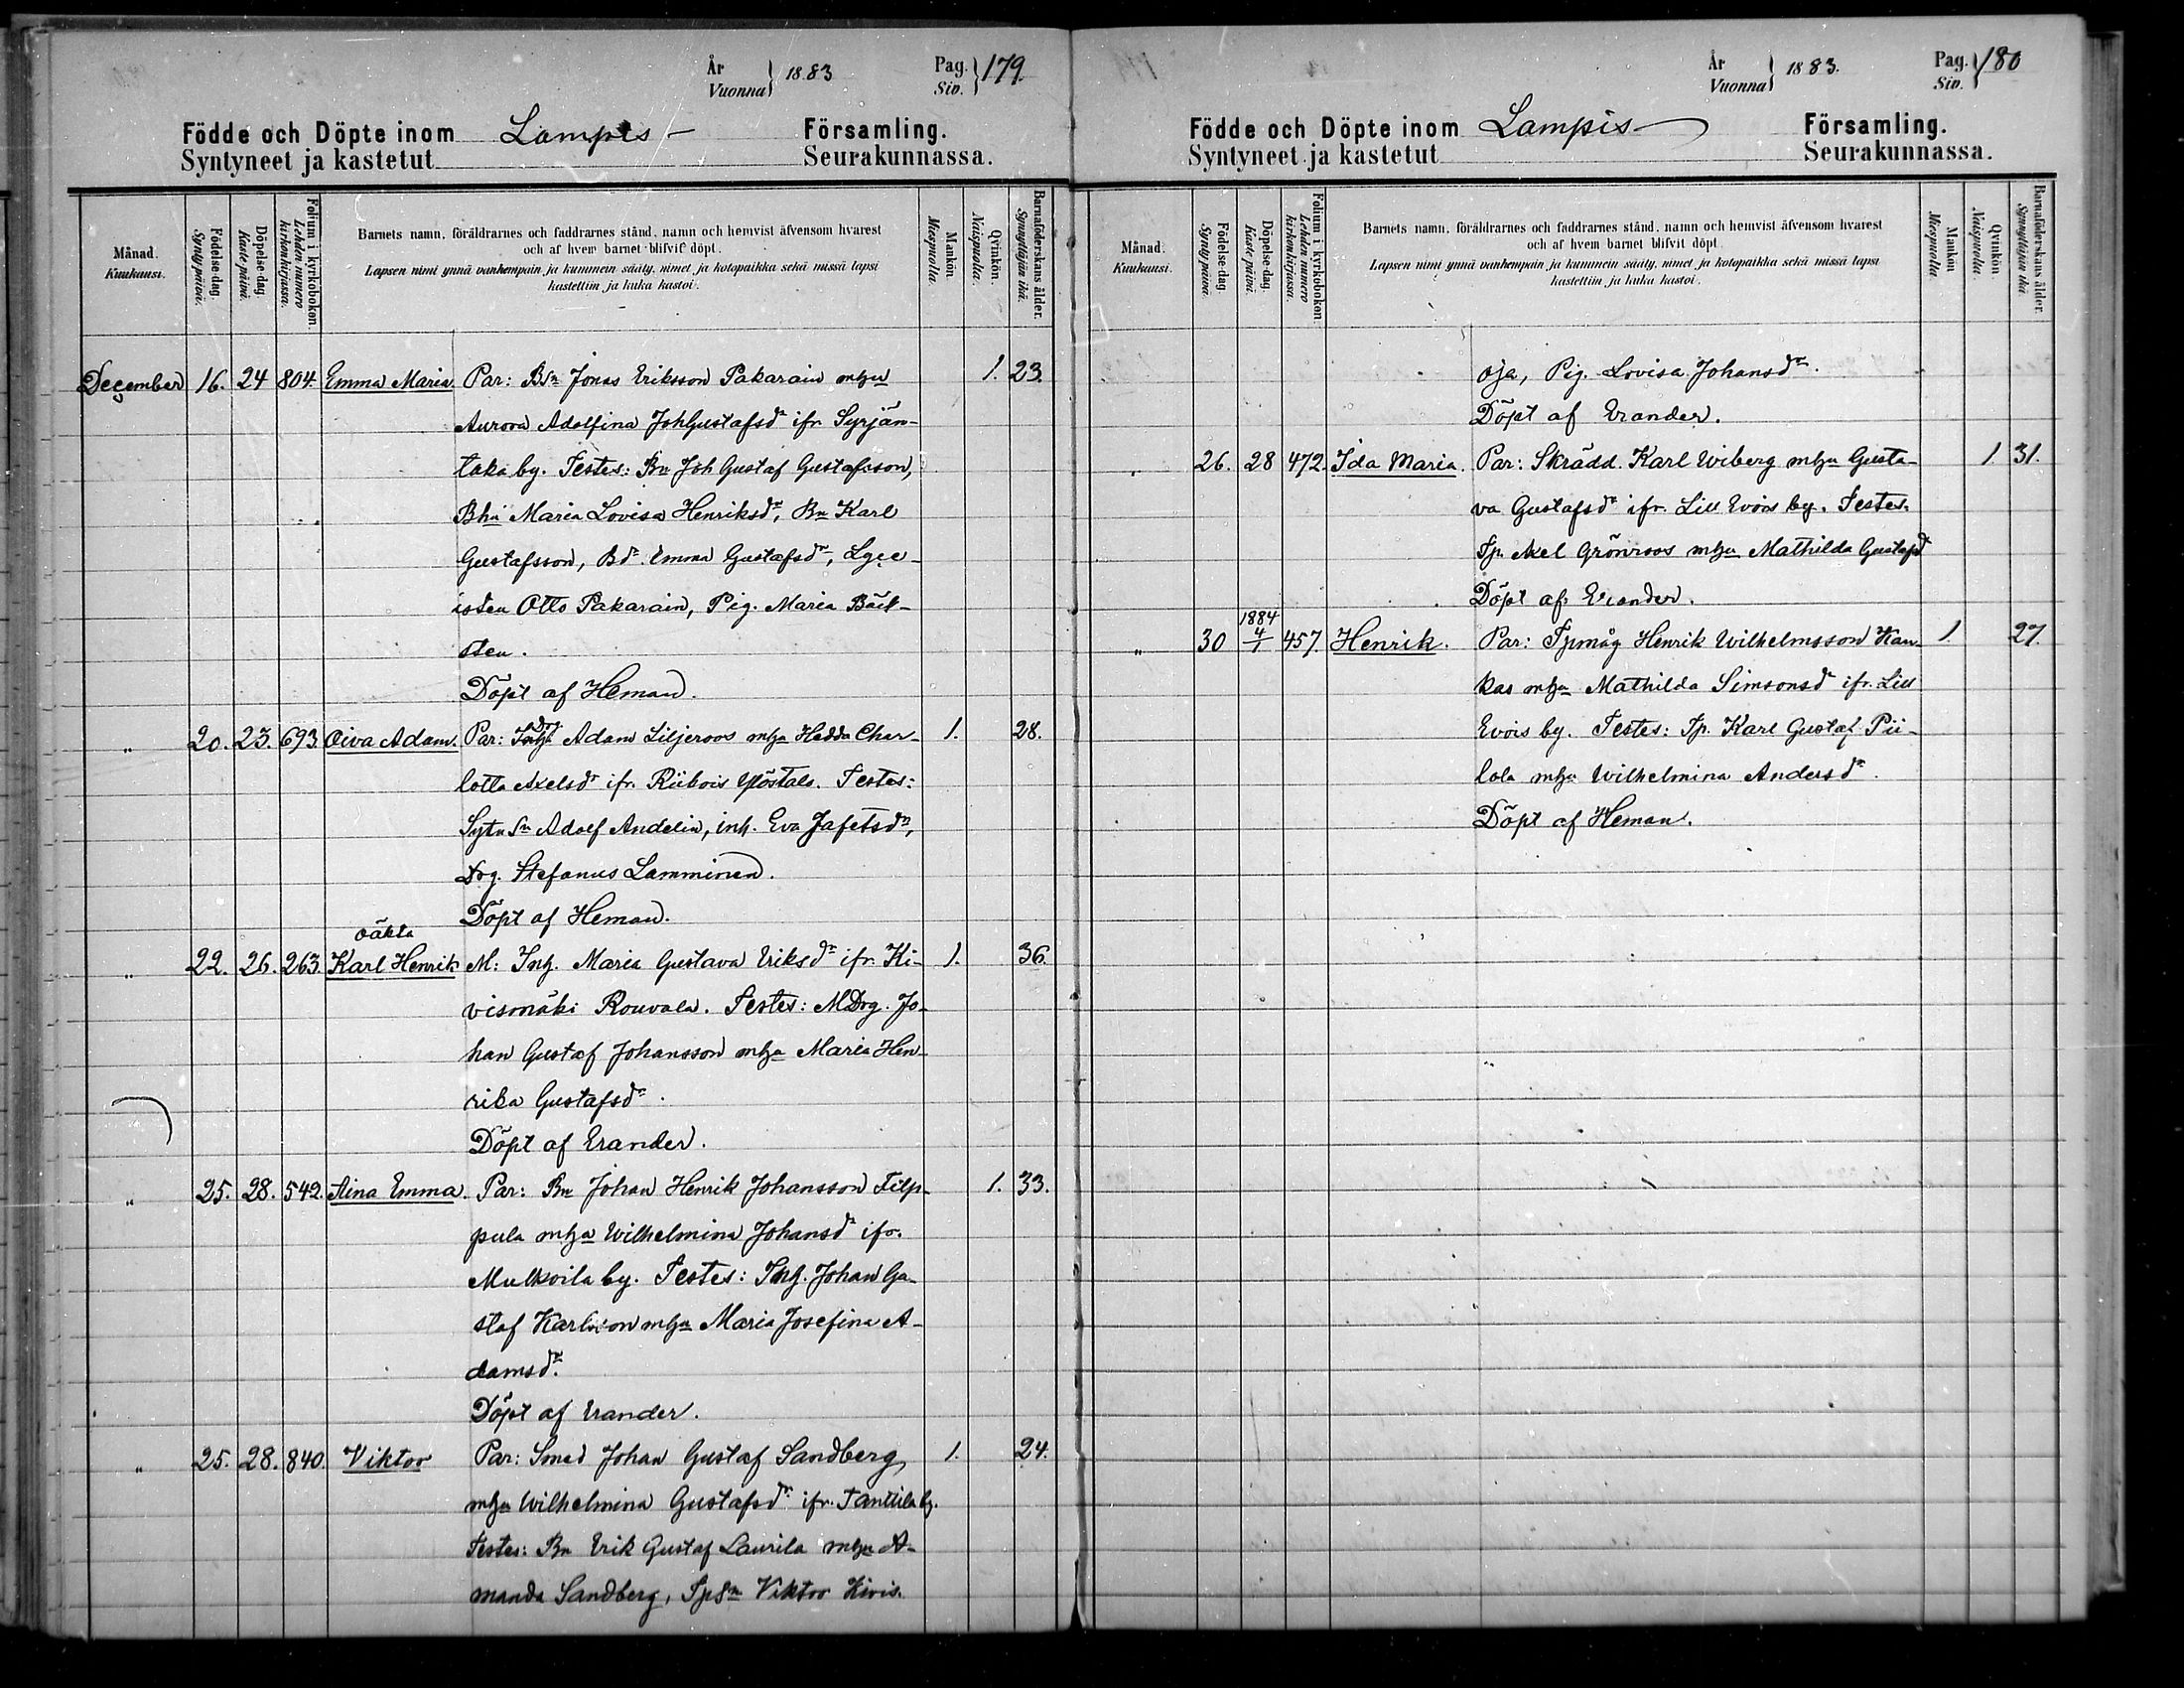 År
Vuonna } 1883
Pag.
Siv. } 179.
Födde och Döpte inom Lampis Församling.
Syntyneet ja kastetut Seurakunnassa.
Månad.
Kuukausi.
Födelse-dag.
Synty päivä.
Döpelse-dag.
Kaste-päivä.
Folium i kyrkoboken.
Lehden numero
kirkonkirjassa.
Barnets namn, föräldrarnes och faddrarnes stånd, namn och hemvist äfvensom hvarest
och af hvem barnet blifvit döpt.
Lapsen nimi ynnä vanhempain ja kummein sääty, nimet ja kotopaikka sekä missä lapsi
kastettiin ja kuka kastoi.
Mankön.
Miespuolia.
Qvinkön.
Naispuolia.
Barnaföderskans ålder.
Synnyttäjän ikä.
December 16. 24 804. Emma Maria. Par: BSn Jonas Eriksson Pakarain mhu 1. 23.
Aurora Adolfina JohGustafsdr ifr. Syrjän-
taka by. Testes: Bn Joh Gustaf Gustafsson,
Bhu Maria Lovisa Henriksdr, Bn Karl
Gustafsson, Bdr Emma Gustafsdr, Lgee-
isten Otto Pakarain, Pig. Maria Bäck-
sten.
Döpt af Heman.
„ 20. 23. 693. Oiva Adam. Par: Adam Liljeroos mhu Hedda Char- 1. 28.
lotta Axelsdr ifr. Riibois Ylöstalo. Testes:
Sytn Sn Adolf Andelin, inh. Eva Jafetsdr,
Drg. Stefanus Lamminen.
Döpt af Heman.
oäkta
„ 22. 26. 263. Karl Henrik M: Inh. Maria Gustava Eriksdr ifr. Ki- 1. 36.
vismäki Rouvala. Testes: MDrg. Jo-
han Gustaf Johansson mhu Maria Hen-
rika Gustafsdr.
Döpt af Erander.
„ 25. 28. 542. Aina Emma. Par: Bn Johan Henrik Johansson Filp- 1. 33.
pula mhu Wilhelmina Johansdr ifr.
Mulkoila by. Testes: Inh. Johan Gu-
staf Karlsson mhu Maria Josefina A-
damsdr.
Döpt af Erander.
„ 25. 28. 840. Viktor Par: Smed Johan Gustaf Sandberg 1. 24.
mhu Wilhelmina Gustafsdr ifr. Tanttila by.
Testes: Bn Erik Gustaf Laurila mhu A-
manda Sandberg, TpSn Viktor Kivis-
År
Vuonna } 1883.
Pag.
Siv. } 180
Födde och Döpte inom Lampis Församling.
Syntyneet ja kastetut Seurakunnassa.
Månad.
Kuukausi.
Födelse-dag.
Synty päivä.
Döpelse-dag.
Kaste päivä.
Folium i kyrkoboken.
Lehden numero
kirkonkirjassa.
Barnets namn, föräldrarnes och faddrarnes stånd, namn och hemvist äfvensom hvarest
och af hvem barnet blifvit döpt.
Lapsen nimi ynnä vanhempain ja kummein sääty, nimet ja kotopaikka sekä missä lapsi
kastettiin ja kuka kastoi.
Mankön
Miespuolia.
Qvinkön
Naispuolia.
Barnaföderskans ålder.
Synnyttäjän ikä.
oja, Pig. Lovisa Johansdr.
Döpt af Erander.
„ 26. 28 472. Ida Maria. Par: Skrädd. Karl Wiberg mhu Gusta- 1. 31.
va Gustafsdr ifr. Lill Evois by. Testes:
Tp. Axel Grönroos mhu Mathilda Gustafsdr
Döpt af Erander.
1884
„ 30 4/1 457. Henrik. Par: Tpmåg Henrik Wilhelmsson Kan- 1. 27.
kas mhu Mathilda Simonsdr ifr. Lill
Evois by. Testes: Tp. Karl Gustaf Pii-
lola mhu Wilhelmina Andersdr.
Döpt af Heman.